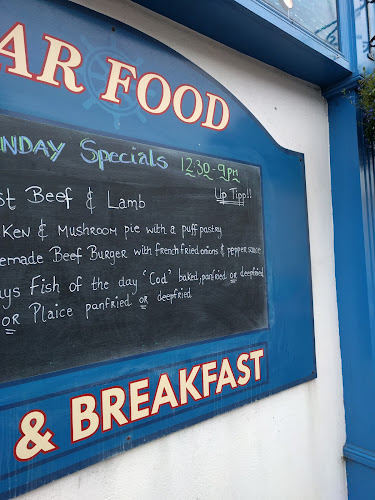 AR FOOD
NDAY Specials 12.30 - 9pm
st Beef & Lamb Up Tipp!!
KEN & MUSHROOM pie with a puff pastry
emade Beef Burger with french fried onions & pepper sauce
ays Fish of the day 'Cod' baked, panfried or deepfried
or Plaice panfried or deepfried
& BREAKFAST